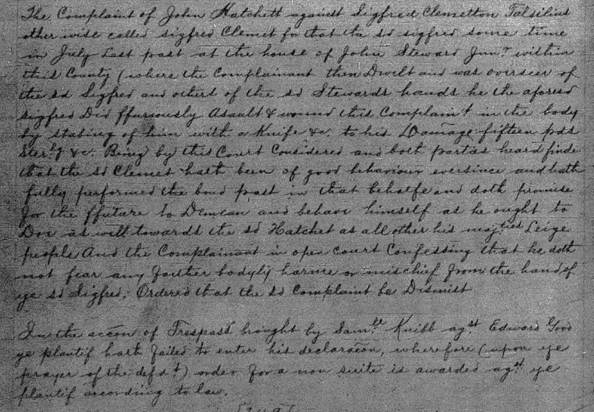 The Complaint of John Hatchett against Sigfred Clemetton Folsilius
other wise called sigfred Clemet for that the sd sigfred some time
in July Last past at the house of John Steward Junr within
this County (where the Complainant then Dwelt and was overseer of
the sd Sigfred and others of the sd Stewards hands he the aforesd
sigfred Did ffuriously Asault & wound this Complaint in the body
by stabing of him with a Knife &c. to his Damage fifteen pds
Sterlg &c. Being by this Court Considered and both parties heard finde
that the sd Clemet hath been of good behaviour eversince and hath
fully performed the bond past in that behalfe and doth promise
for the ffuture to Demean and behave himself as he ought to
Doe as well towards the sd Hatchet as all other his majties Leige
people And the Complainant in open court Confessing that he doth
not fear any further bodyly harme or mischief from the hand of
ye sd Sigfred, Ordered that the sd Complaint be Dismist
In the accon of Trespass brought by Samll Knibb agst Edward Good
ye plantif hath failed to enter his declaracon, wherefore (upon ye
prayer of the defdt) order for a non suite is awarded agst ye
plantif according to law.